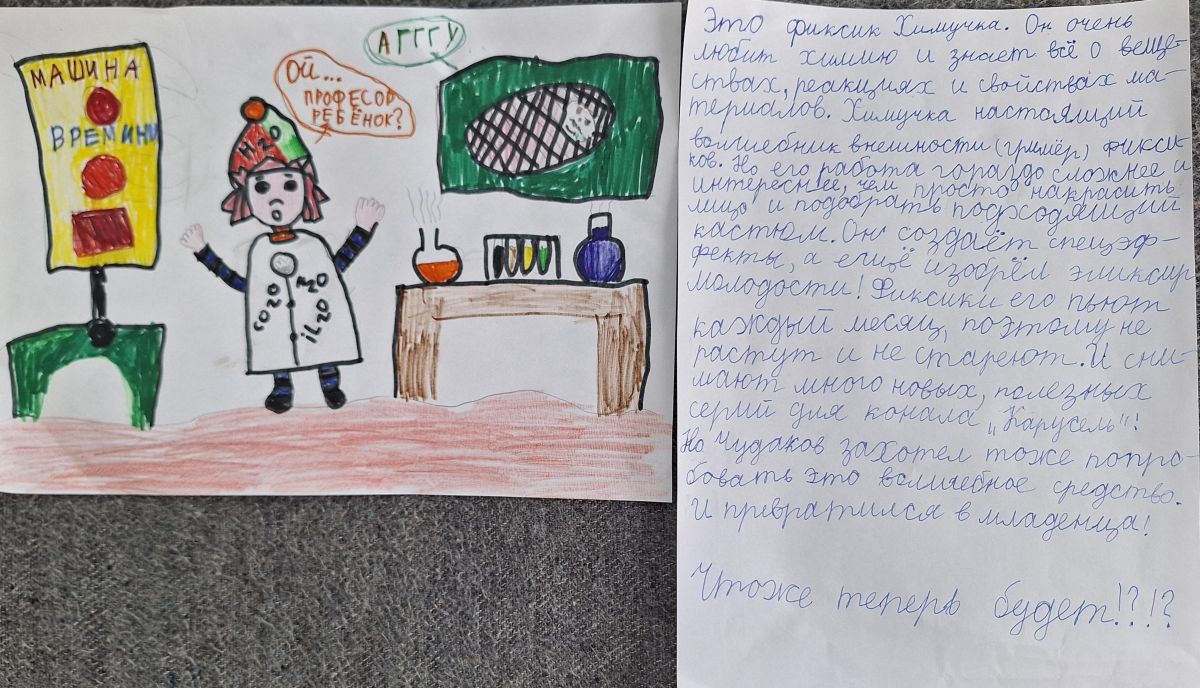 МАШИНА
ВРЕМИНИ
ОЙ...
ПРОФЕСОР
РЕБЁНОК?
АГГГУ
H2O
CO2O
H2O
iL2O
Это фиксик Химучка. Он очень
любит химию и знает всё о веще-
ствах, реакциях и свойствах ма-
териалов. Химучка настоящий
волшебник внешности (гримёр) фикси-
ков. Но его работа гораздо сложнее и
интереснее, чем просто накрасить
лицо и подобрать подходящий
кастюм. Он создаёт спецэф-
фекты, а ещё изобрёл эликсир
молодости! Фиксики его пьют
каждый месяц, поэтому не
растут и не стареют. И сни-
мают много новых, полезных
серий для канала „Карусель“!
Но Чудаков захотел тоже попро-
бовать это волшебное средство.
И превратился в младенца!
Чтоже теперь будет!?!?